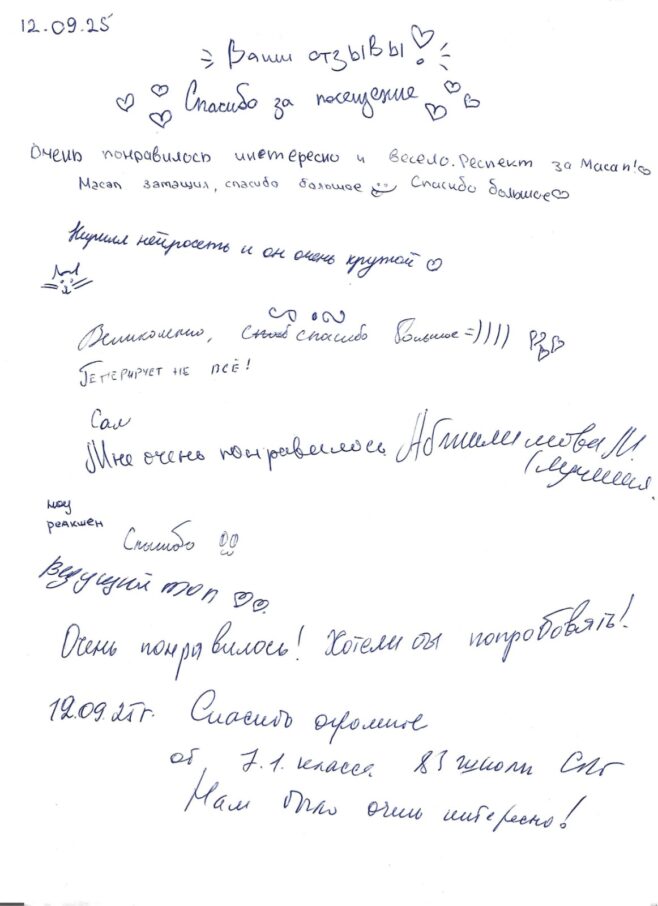 12.09.25
Ваши отзывы!
Спасибо за посещение
Очень понравилось интересно и весело. Респект за Масап!
Масап затащил, спасибо большое Спасибо большое
Кирилл нейросеть и он очень крутой
Великолепно, спасибо большое =))))
Генерирует не всё!
Сам
Мне очень понравилось
(лучшая.
моу
реакшен
Спасибо
Ведущий топ
Очень понравилось! Хотели бы попробовать!
12.09.25г. Спасибо огромное
от 7.1. класса 83 школы
Нам было очень интересно!